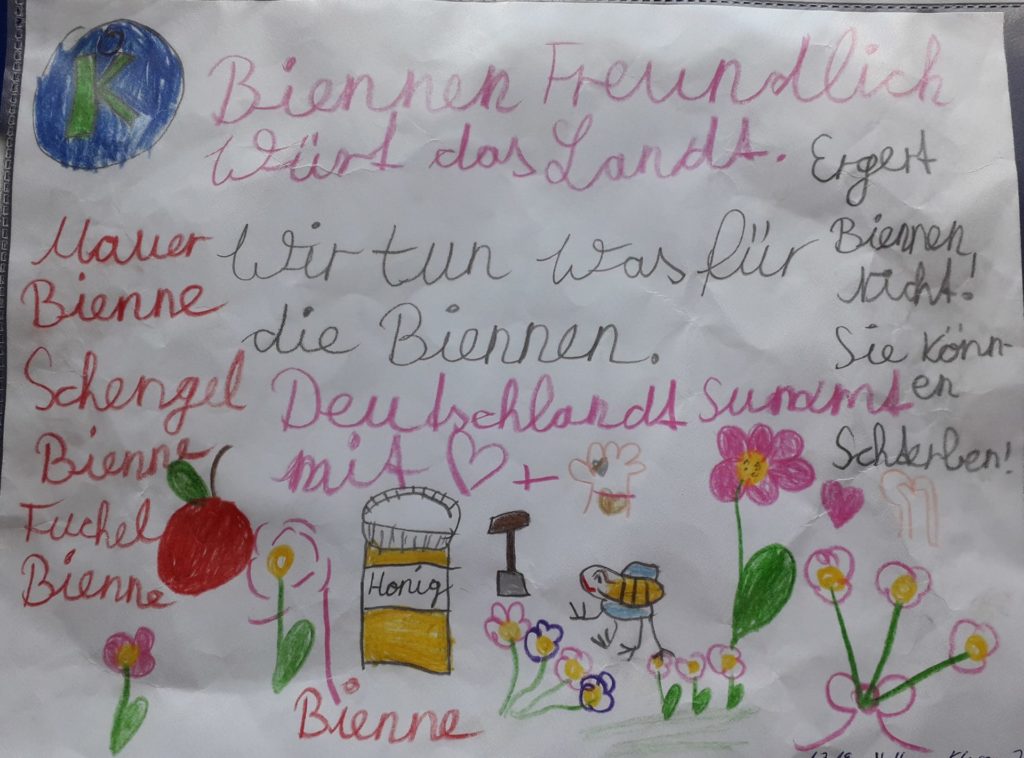 K
Biennen Freundlich
Würt das Landt.
Wir tun was für
die Biennen.
Deutschlandt summt
mit
Ergert
Biennen
Nicht!
Sie könn-
en
Schterben!
Mauer
Bienne
Schengel
Bienne
Fuchel
Bienne
Honig
Bienne